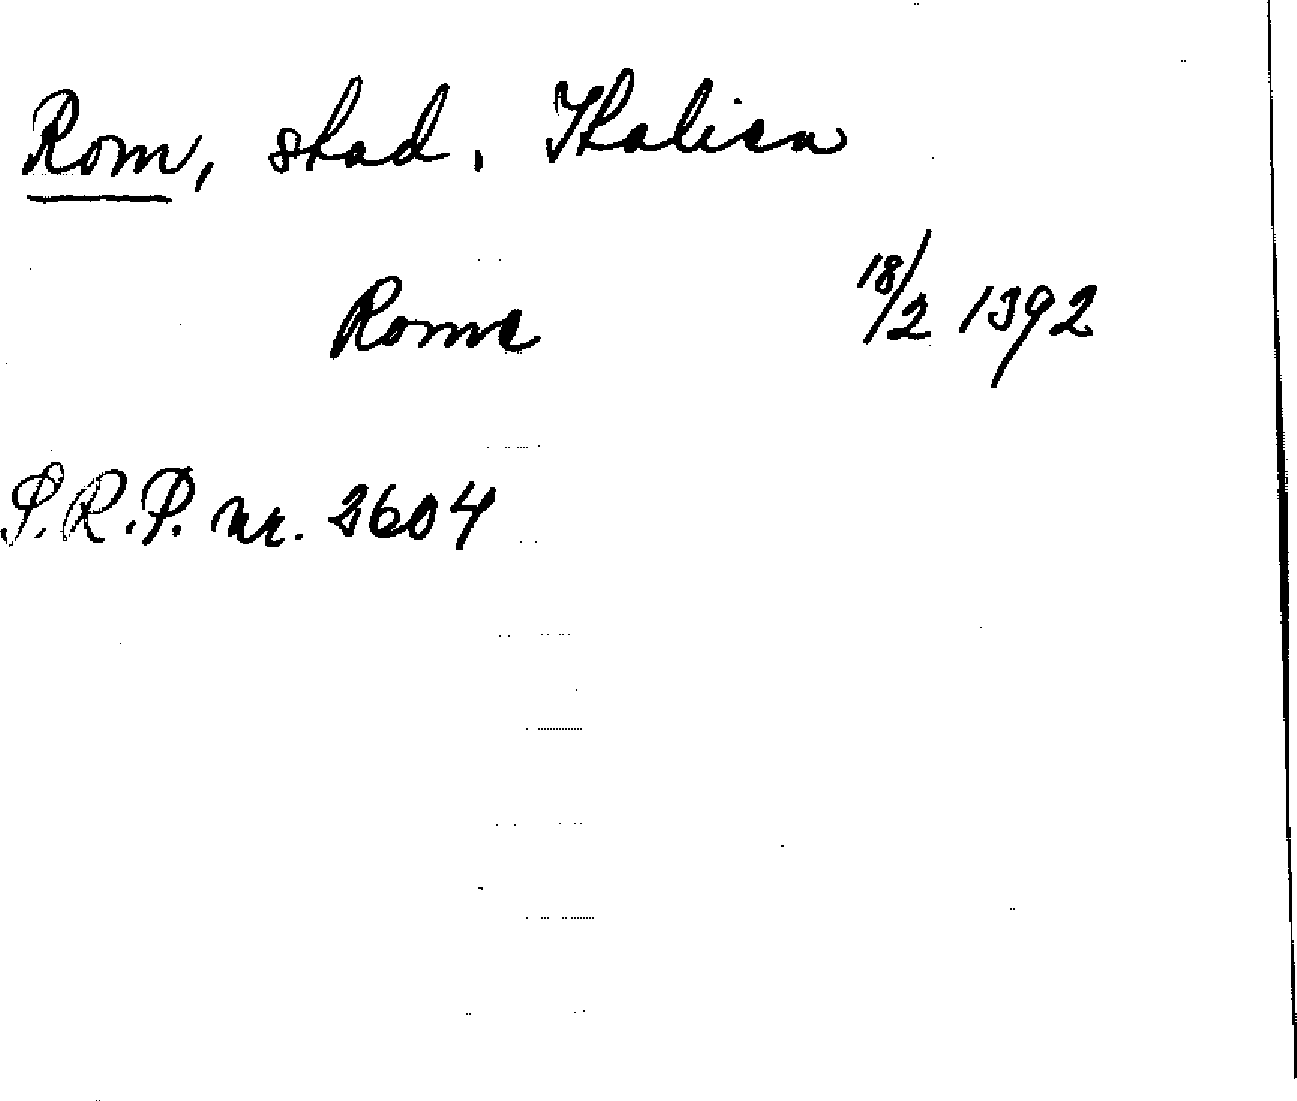 Rom, stad. Italien
Rome 18/2 1392
S.R.P. nr. 2604